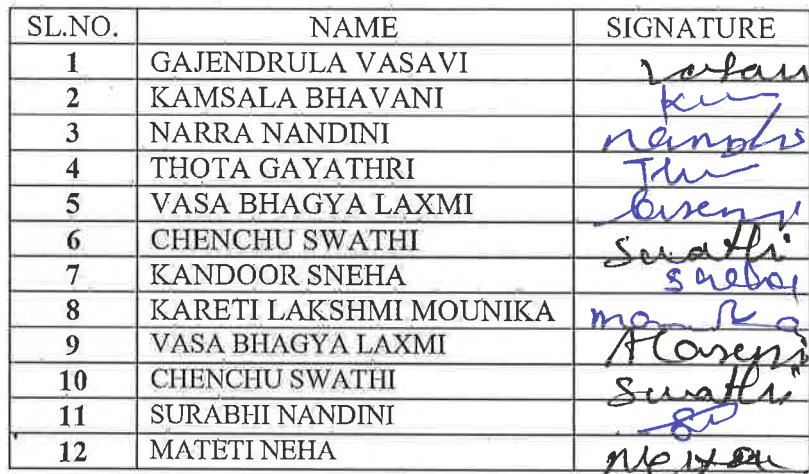 SL.NO. NAME SIGNATURE
1 GAJENDRULA VASAVI
2 KAMSALA BHAVANI
3 NARRA NANDINI
4 THOTA GAYATHRI
5 VASA BHAGYA LAXMI
6 CHENCHU SWATHI Swathi
7 KANDOOR SNEHA
8 KARETI LAKSHMI MOUNIKA
9 VASA BHAGYA LAXMI
10 CHENCHU SWATHI Swathi
11 SURABHI NANDINI
12 MATETI NEHA